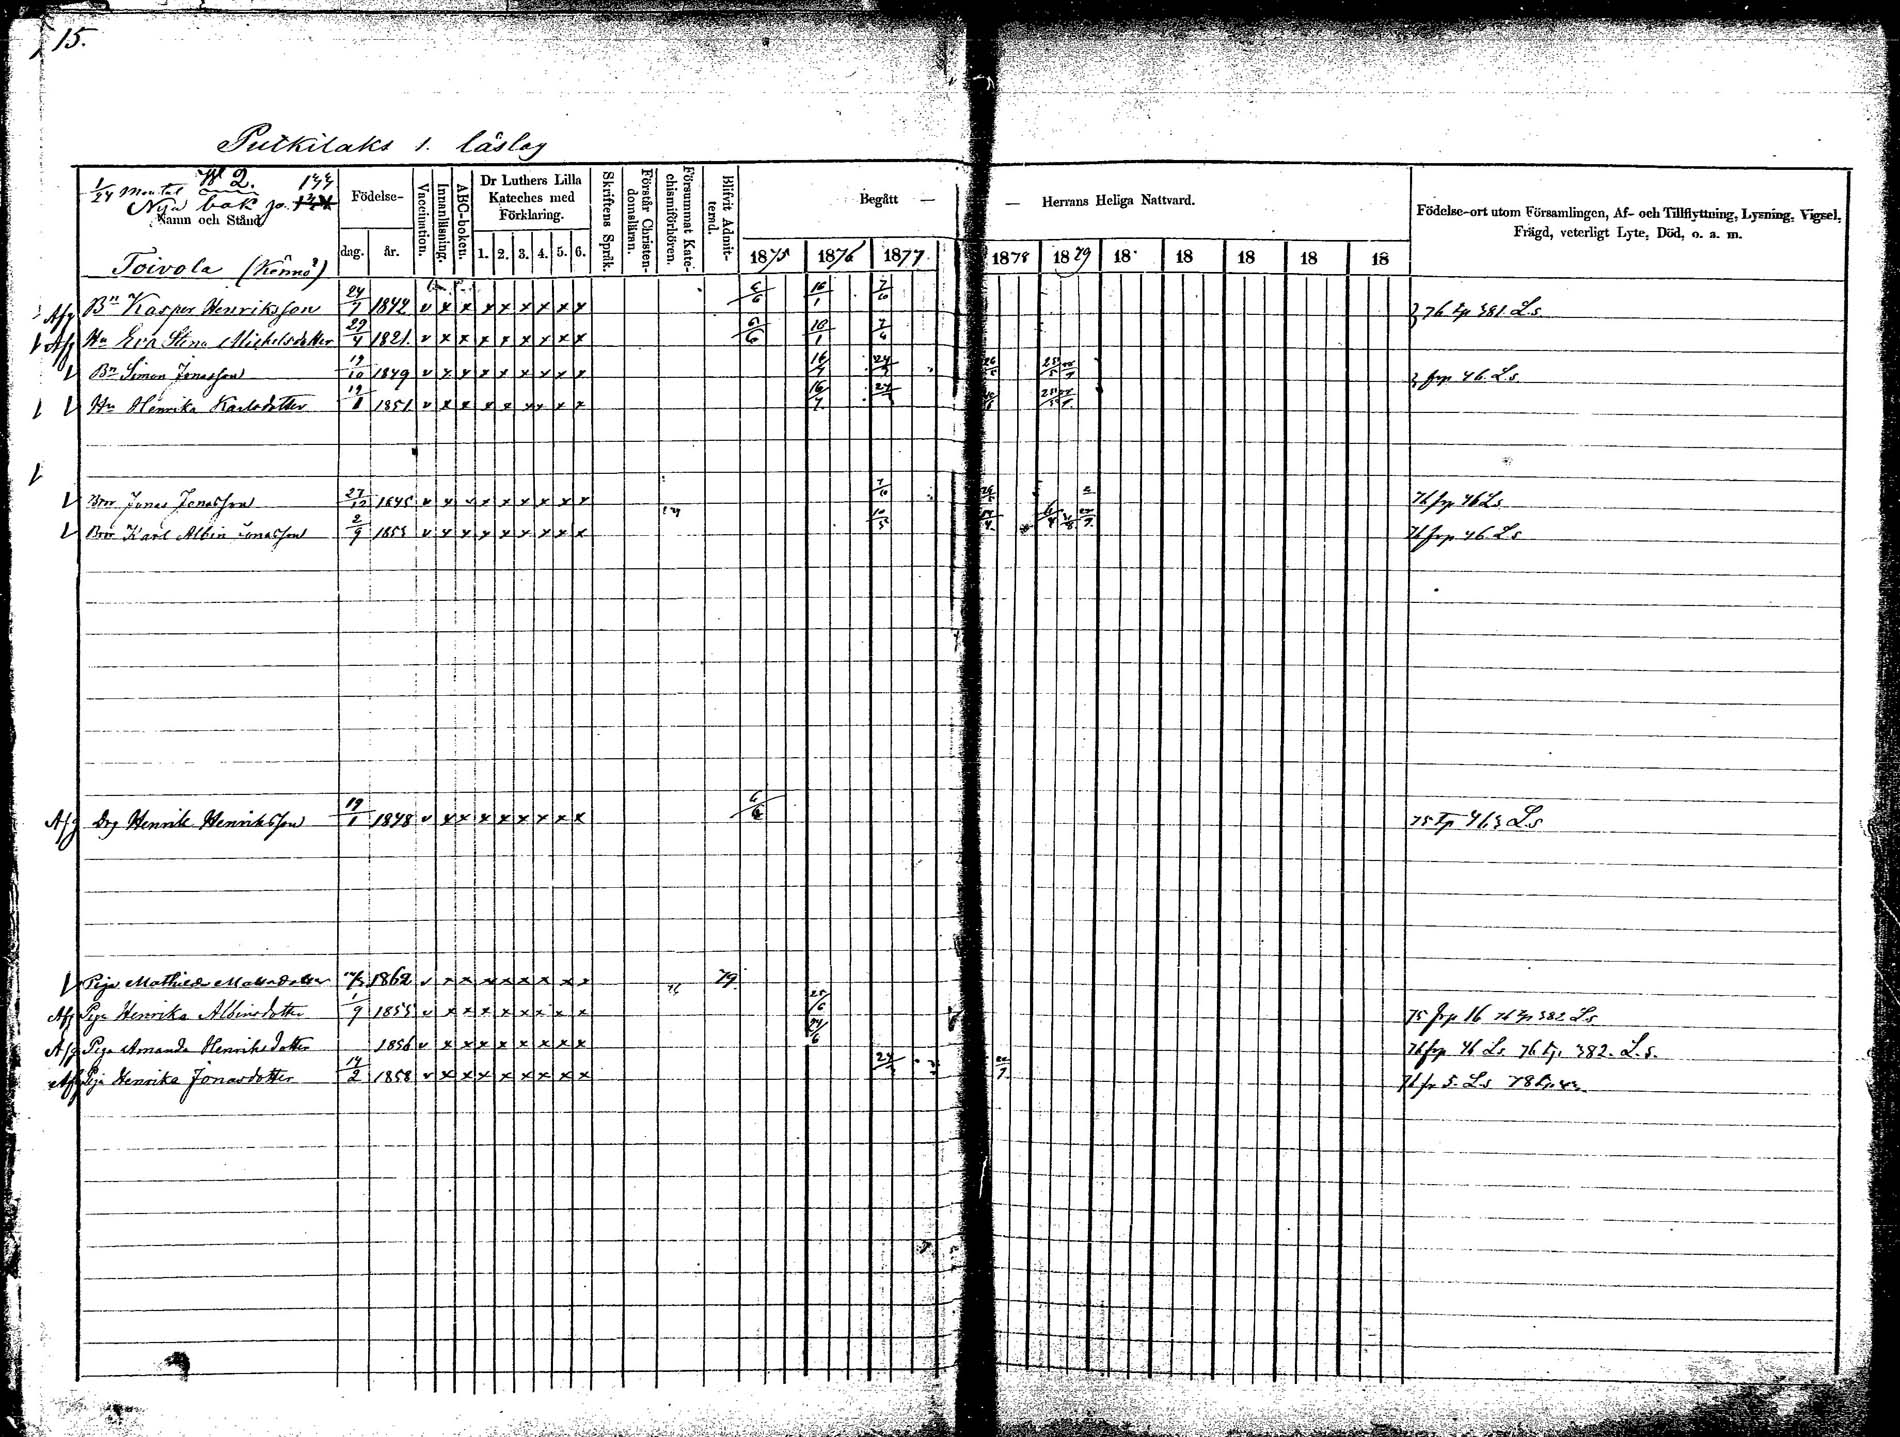 15.
Putkilaks 1. läslag
1/24 Mantal № 2. 144
Nya bak p.
Namn och Stånd
Födelse-
dag. år.
Vaccination.
Innanläsning.
ABC-boken.
Dr Luthers Lilla Kateches med Förklaring.
1. 2. 3. 4. 5. 6.
Skriftens Språk.
Förstår Christendomsläran.
Försummat Katechismiförhören.
Blifvit Admitterad.
Begått — — Herrans Heliga Nattvard.
1875 1876 1877 1878 1879 18 18 18 18 18
Födelse-ort utom Församlingen, Af- och Tillflyttning, Lysning, Vigsel, Frägd, veterligt Lyte, Död, o. a. m.
Toivola (Kännö)
Afg Bn Kasper Henriksson 24/7 1842 v x x x x x x x x 6/6 16/1 7/10 76 tp 381 L.s.
Afg Hu Eva Stina Michelsdotter 29/4 1821 v x x x x x x x x 6/6 16/1
Bn Simon Jonasson 19/10 1849 v x x x x x x x x 16/7 frp 46. L.s
Hu Henrika Karlsdotter 1851 v x x x x x x x x 16/7
Bror Jonas Jonasson 27/12 1845 v x x x x x x x x 7/10 76 frp 46 L.s
Bror Karl Albin Jonasson 2/9 1855 v x x x x x x x x 10/5 76 frp 46. L.s
Afg Drg Henrik Henriksson 19/1 1848 v x x x x x x x x 6/6 75 tp 463 L.s
Piga Mathilda 1862 v x x x x x x x x 79.
Afg Piga Henrika Albinsdotter 1/9 1855 v x x x x x x x x 25/6 75 frp 16 76 tp 382 L.s.
Afg Piga Amanda Henriksdotter 1856 v x x x x x x x x 24/6 76 frp 46 L.s 76 tp. 382. L.s.
Afg Piga Henrika Jonasdotter 14/2 1858 v x x x x x x x x 76 fr 5. L.s 78 tp